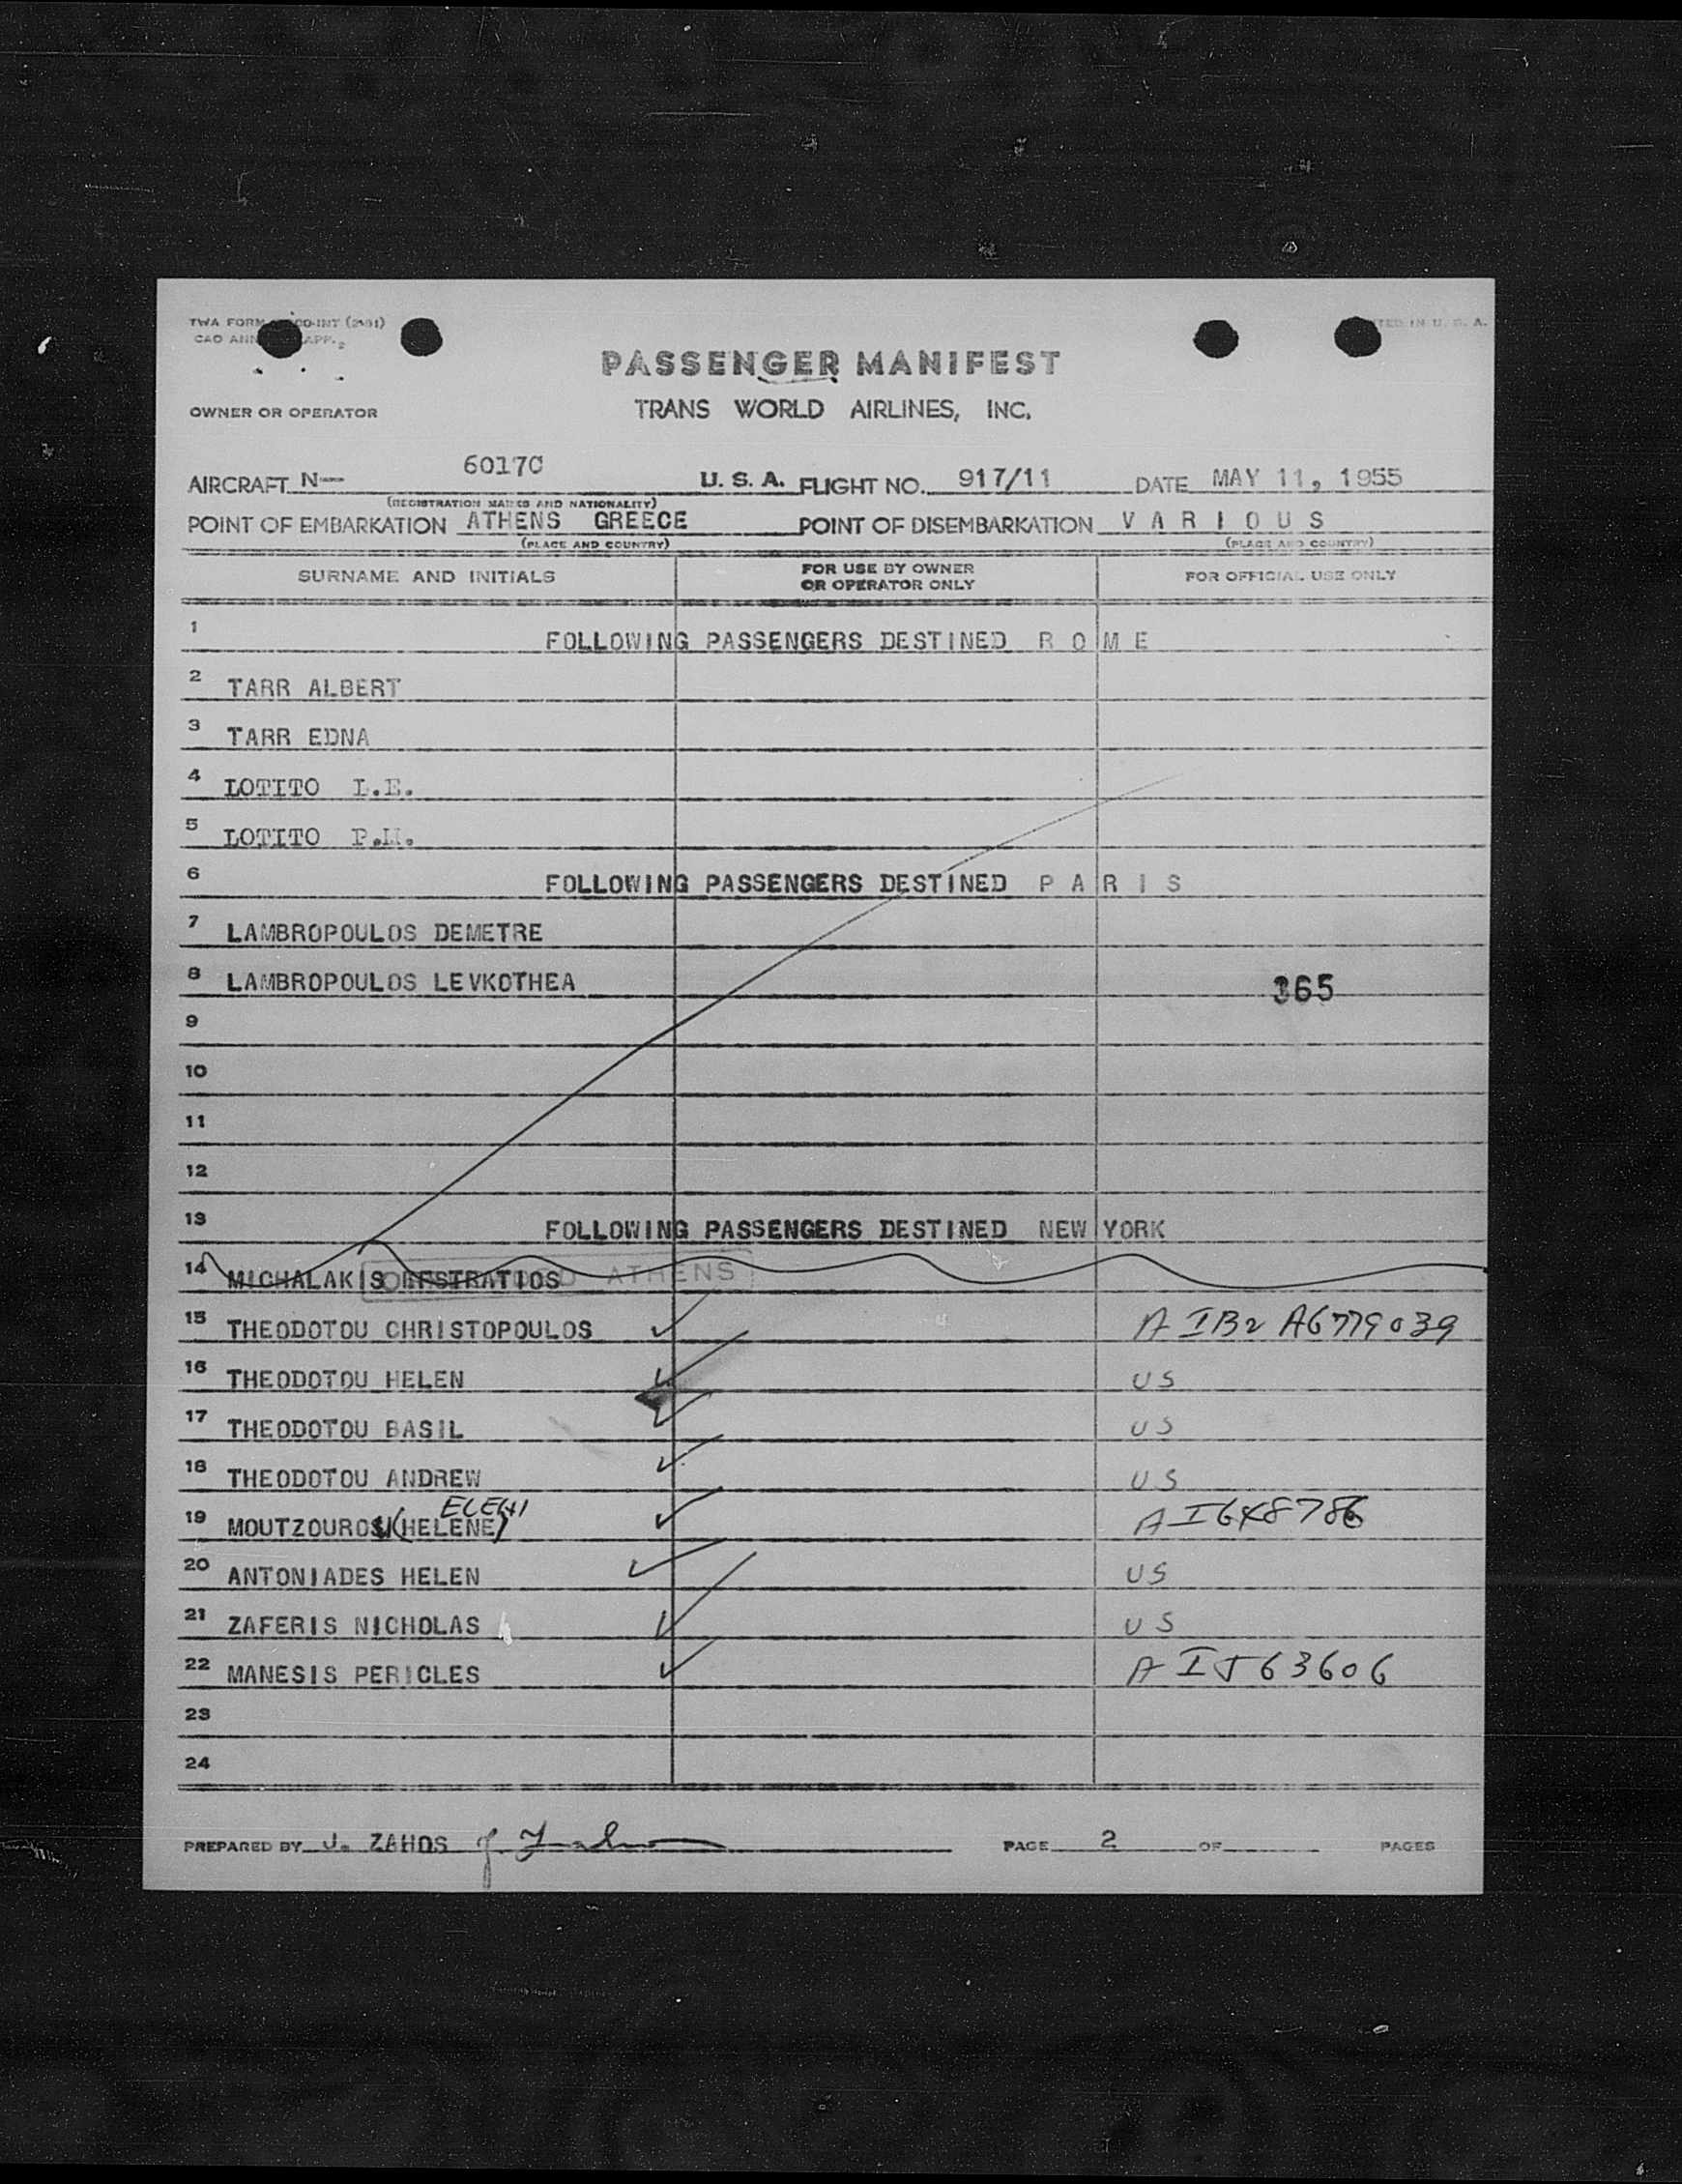 TWA FORM
CAO ANN APP. 2
PASSENGER MANIFEST
OWNER OR OPERATOR TRANS WORLD AIRLINES, INC.
AIRCRAFT N--- 6017C U. S. A. FLIGHT NO. 917/11 DATE MAY 11, 1955
(REGISTRATION MARKS AND NATIONALITY)
POINT OF EMBARKATION ATHENS GREECE POINT OF DISEMBARKATION V A R I O U S
(PLACE AND COUNTRY) (PLACE AND COUNTRY)
SURNAME AND INITIALS FOR USE BY OWNER OR OPERATOR ONLY FOR OFFICIAL USE ONLY
1 FOLLOWING PASSENGERS DESTINED R O M E
2 TARR ALBERT
3 TARR EDNA
4 LOTITO L.E.
5 LOTITO P.M.
6 FOLLOWING PASSENGERS DESTINED P A R I S
7 LAMBROPOULOS DEMETRE
8 LAMBROPOULOS LEVKOTHEA 365
9
10
11
12
13 FOLLOWING PASSENGERS DESTINED NEW YORK
14 MICHALAKIS EFSTRATIOS ATHENS
15 THEODOTOU CHRISTOPOULOS A IB2 A6779039
16 THEODOTOU HELEN US
17 THEODOTOU BASIL US
18 THEODOTOU ANDREW US
ELENI
19 MOUTZOUROS (HELENE) A I648786
20 ANTONIADES HELEN US
21 ZAFERIS NICHOLAS US
22 MANESIS PERICLES A I563606
23
24
PREPARED BY J. ZAHOS PAGE 2 OF PAGES